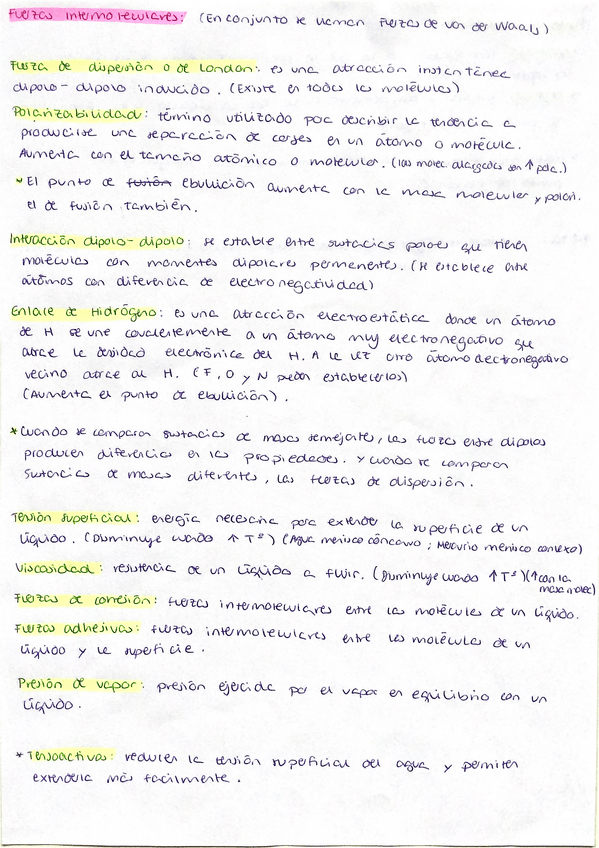 Fuerzas intermoleculares: (En conjunto se llaman Fuerzas de van der Waals)
Fuerza de dispersión o de London: es una atracción instantánea
dipolo-dipolo inducido. (Existe en todas las moléculas)
Polarizabilidad: término utilizado para describir la tendencia a
producirse una separación de cargas en un átomo o molécula.
Aumenta con el tamaño atómico o molecular. (las molec. alargadas son ↑ pola.)
El punto de fusión ebullición aumenta con la masa molecular y polari.
el de fusión también.
Interacción dipolo-dipolo: se estable entre sustacias polares que tienen
moléculas con momentos dipolares permanentes. (se establece entre
átomos con diferencia de electronegatividad)
Enlace de Hidrógeno: es una atracción electroestática donde un átomo
de H se une covalentemente a un átomo muy electronegativo que
atrae la densidad electrónica del H. A la vez otro átomo electronegativo
vecino atrae al H. (F, O y N pueden establecerlos)
(Aumenta el punto de ebullición).
*Cuando se comparan sustacias de masas semejantes, las fuerzas entre dipolos
producen diferencia en las propiedades. y cuando se comparan
sustacias de masas diferentes, las fuerzas de dispersión.
Tensión superficial: energía necesaria para extender la superficie de un
líquido. (Disminuye cuando ↑ Tª) (Agua menisco cóncavo; Mercurio menisco convexo)
Viscosidad: resistencia de un líquido a fluir. (Disminuye cuando ↑ Tª) (↑ con la
masa molec)
Fuerzas de cohesión: fuerzas intermoleculares entre las moléculas de un líquido.
Fuerzas adhesivas: fuerzas intermoleculares entre las moléculas de un
líquido y la superficie.
Presión de vapor: presión ejercida por el vapor en equilibrio con un
líquido.
*Tensoactivos: reducen la tensión superficial del agua y permiten
extenderla más facilmente.